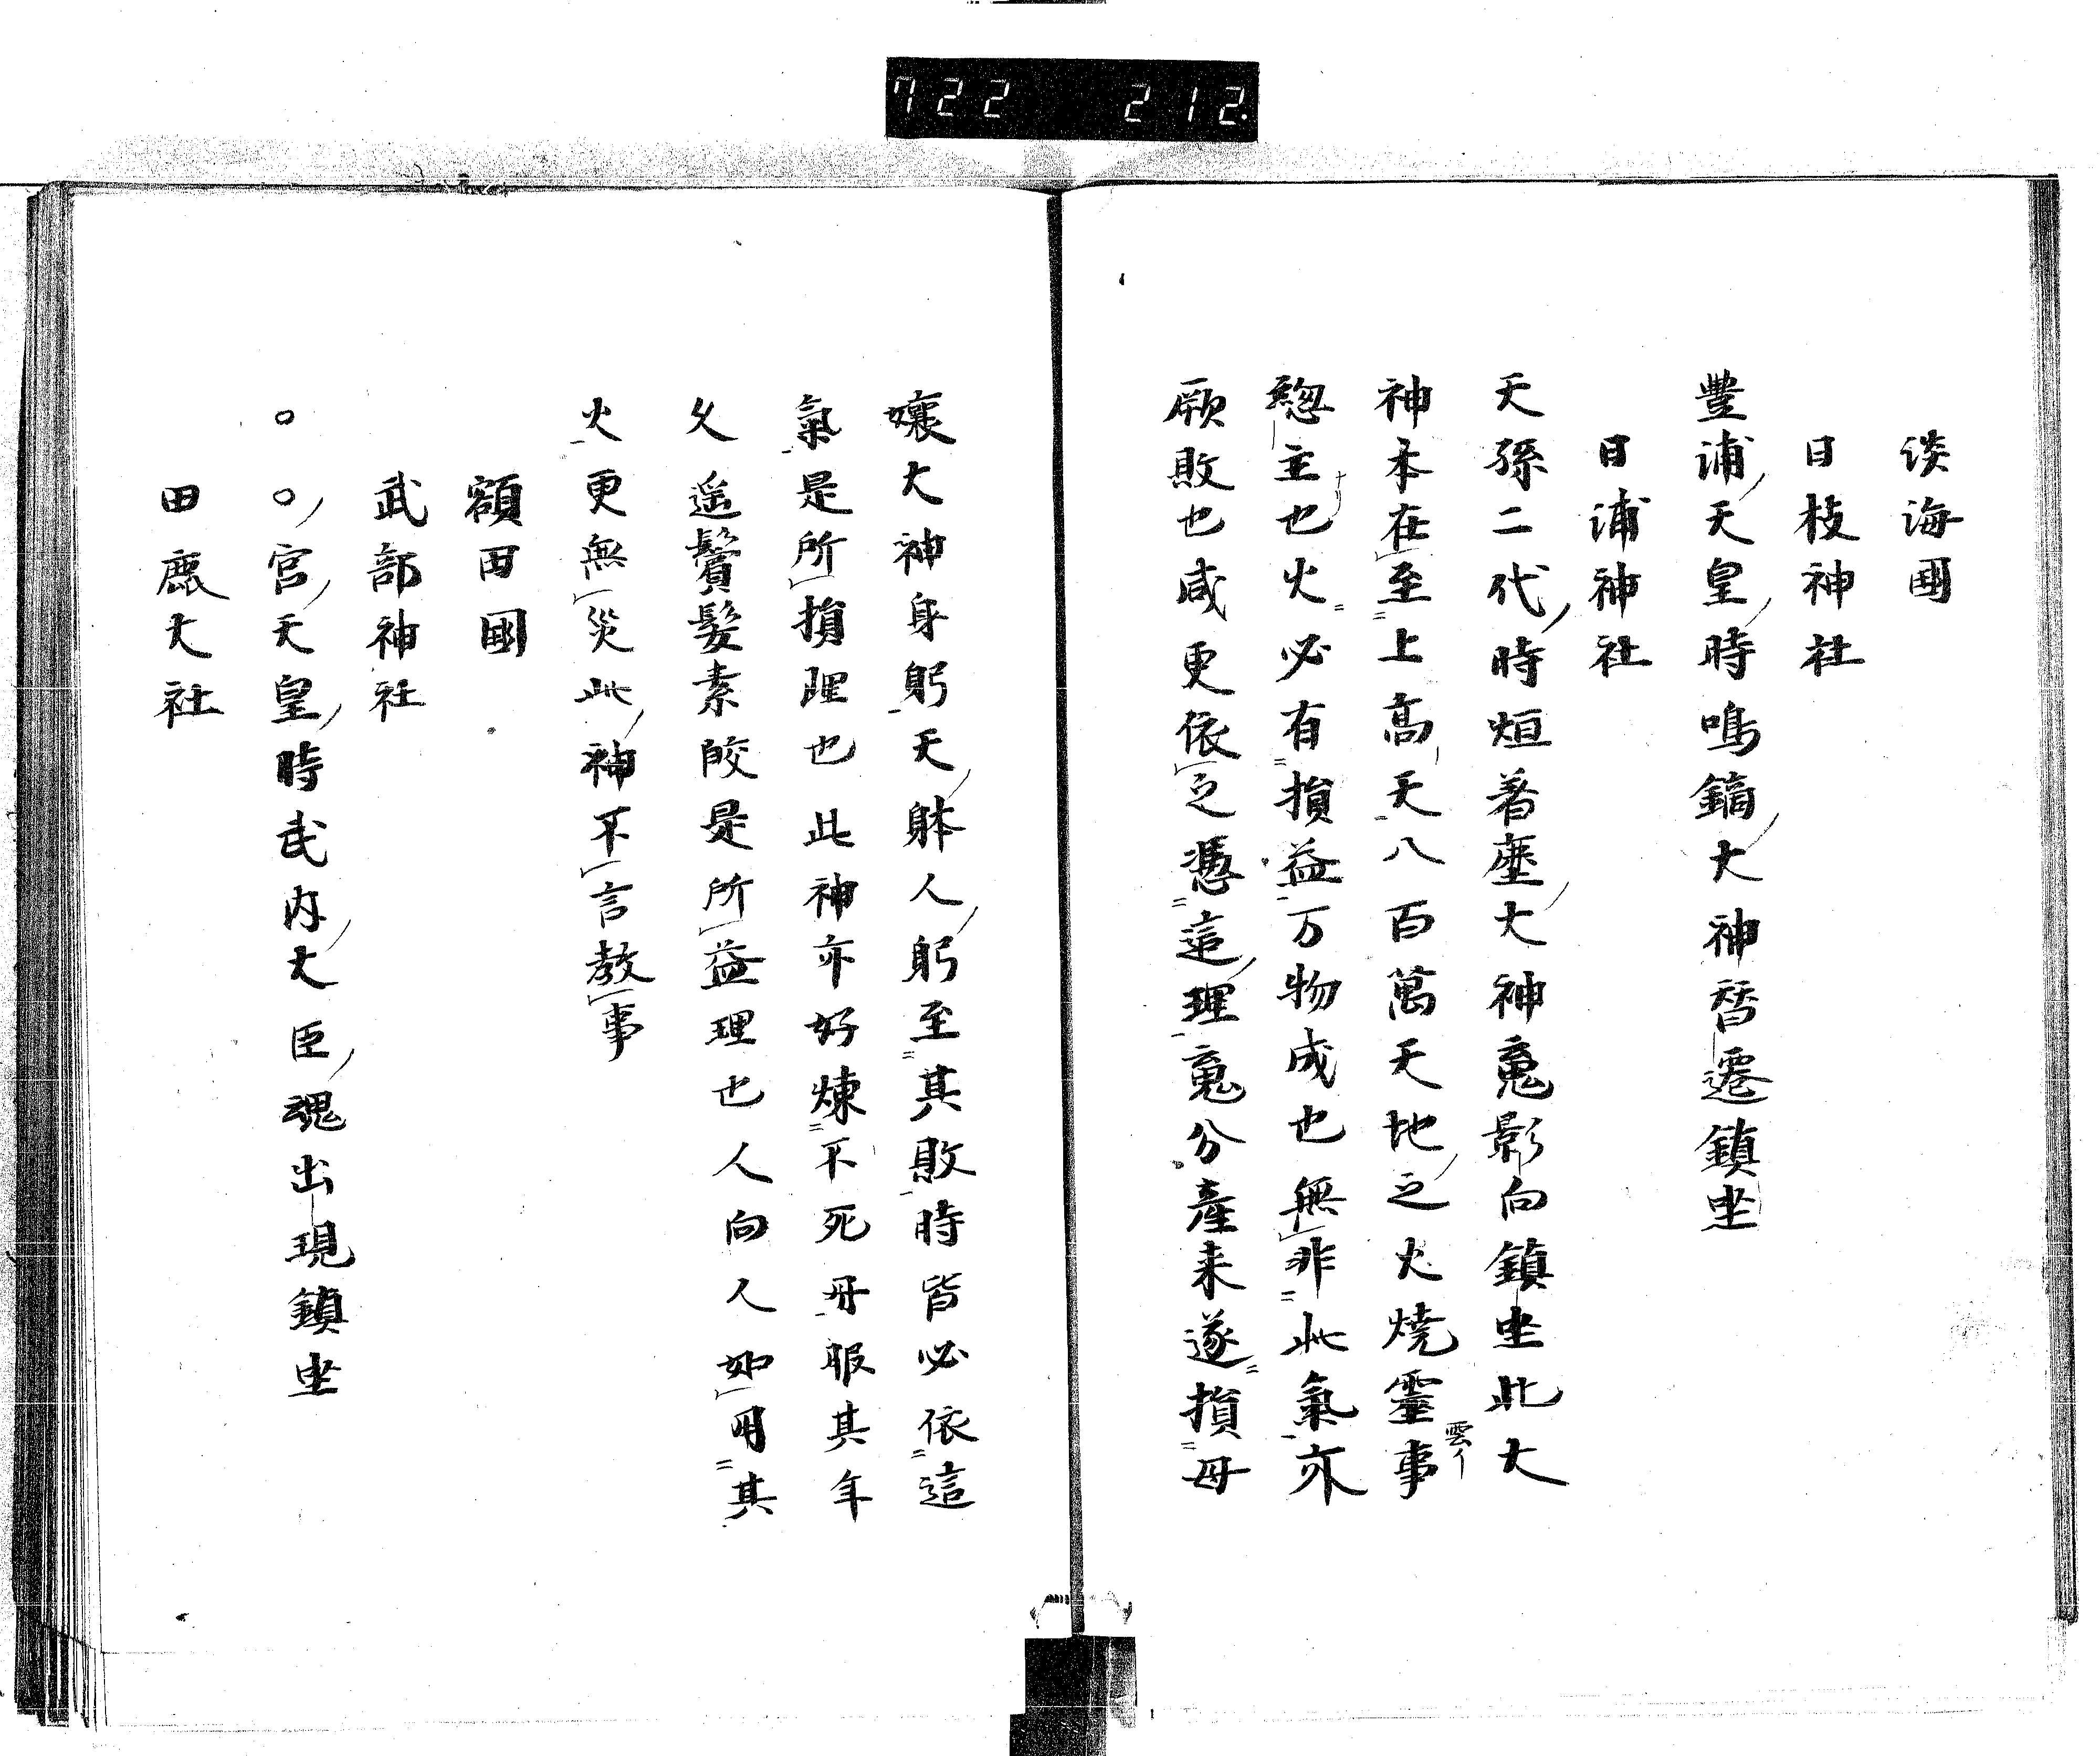 722 212.
淡海國
日枝神社
豊浦天皇時鳴鏑大神暦遷鎮坐
日浦神社
天孫二代時烜著塵大神䰟影向鎮坐此大
神本在至上高天八百萬天地之火焼靈事
雲イ
惣主也火必有損益万物成也無非此氣亦
敗也咸更依之憑這理䰟分産来遂損母
孃大神身躬天躰人躬至其敗時皆必依這
氣是所損理也此神亦好煉不死丹服其年
久遥鬢髪素皎是所益理也人向人如用其
火更無災此神不言教事
額田國
武部神社
○○宮天皇時武内大臣魂出現鎮坐
田鹿大社